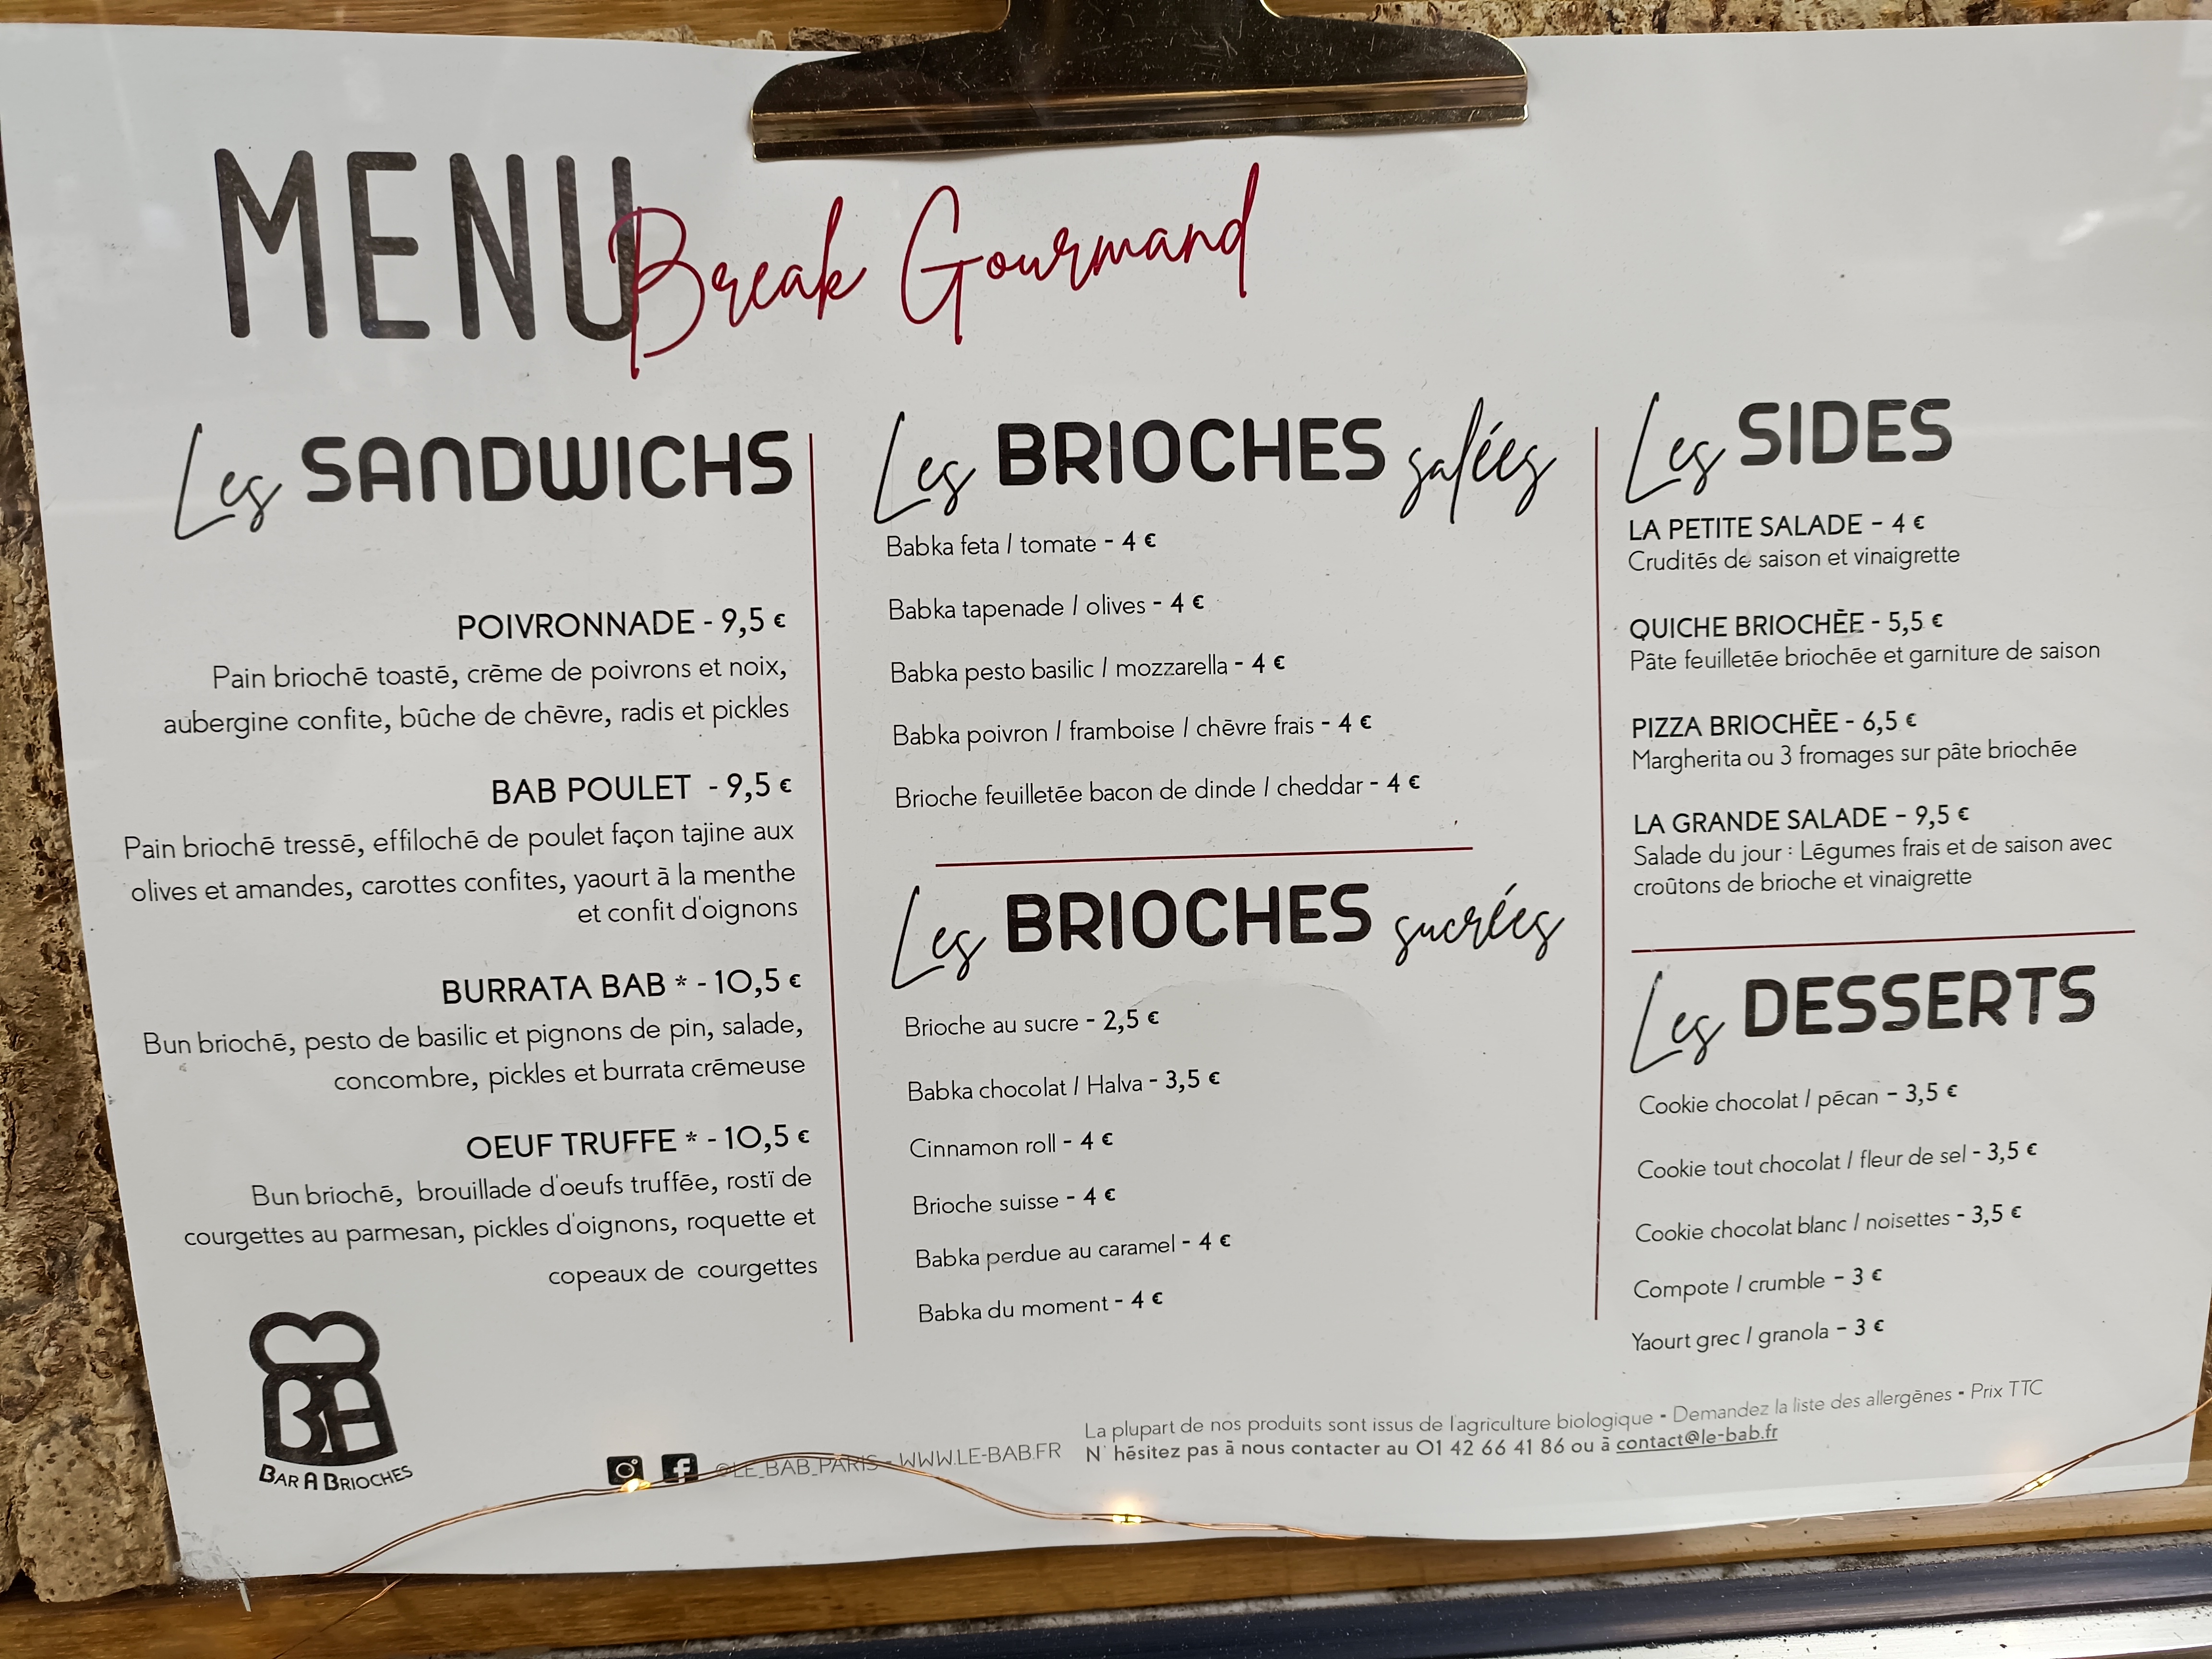 MENU
Break Gourmand
Les SANDWICHS
POIVRONNADE - 9,5 €
Pain brioché toasté, crème de poivrons et noix,
aubergine confite, bûche de chèvre, radis et pickles
BAB POULET - 9,5 €
Pain brioché tressé, effiloché de poulet façon tajine aux
olives et amandes, carottes confites, yaourt à la menthe
et confit d'oignons
BURRATA BAB * - 10,5 €
Bun brioché, pesto de basilic et pignons de pin, salade,
concombre, pickles et burrata crémeuse
OEUF TRUFFE * - 10,5 €
Bun brioché, brouillade d'oeufs truffée, rostï de
courgettes au parmesan, pickles d'oignons, roquette et
copeaux de courgettes
Les BRIOCHES salées
Babka feta / tomate - 4 €
Babka tapenade / olives - 4 €
Babka pesto basilic / mozzarella - 4 €
Babka poivron / framboise / chèvre frais - 4 €
Brioche feuilletée bacon de dinde / cheddar - 4 €
Les BRIOCHES sucrées
Brioche au sucre - 2,5 €
Babka chocolat / Halva - 3,5 €
Cinnamon roll - 4 €
Brioche suisse - 4 €
Babka perdue au caramel - 4 €
Babka du moment - 4 €
Les SIDES
LA PETITE SALADE - 4 €
Crudités de saison et vinaigrette
QUICHE BRIOCHÉE - 5,5 €
Pâte feuilletée briochée et garniture de saison
PIZZA BRIOCHÉE - 6,5 €
Margherita ou 3 fromages sur pâte briochée
LA GRANDE SALADE - 9,5 €
Salade du jour : Légumes frais et de saison avec
croûtons de brioche et vinaigrette
Les DESSERTS
Cookie chocolat / pécan - 3,5 €
Cookie tout chocolat / fleur de sel - 3,5 €
Cookie chocolat blanc / noisettes - 3,5 €
Compote / crumble - 3 €
Yaourt grec / granola - 3 €
BA
BAR A BRIOCHES
@LE_BAB_PARIS - WWW.LE-BAB.FR
La plupart de nos produits sont issus de l'agriculture biologique - Demandez la liste des allergènes - Prix TTC
N' hésitez pas à nous contacter au 01 42 66 41 86 ou à contact@le-bab.fr